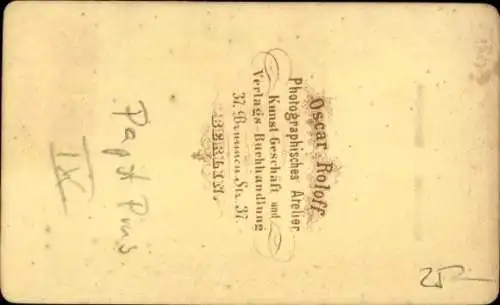 Oscar Roloff
Photographisches Atelier.
Kunst Geschäft und
Verlags-Buchhandlung
37. Brunnen Str. 37.
BERLIN.
Papst Pius
IX
25-